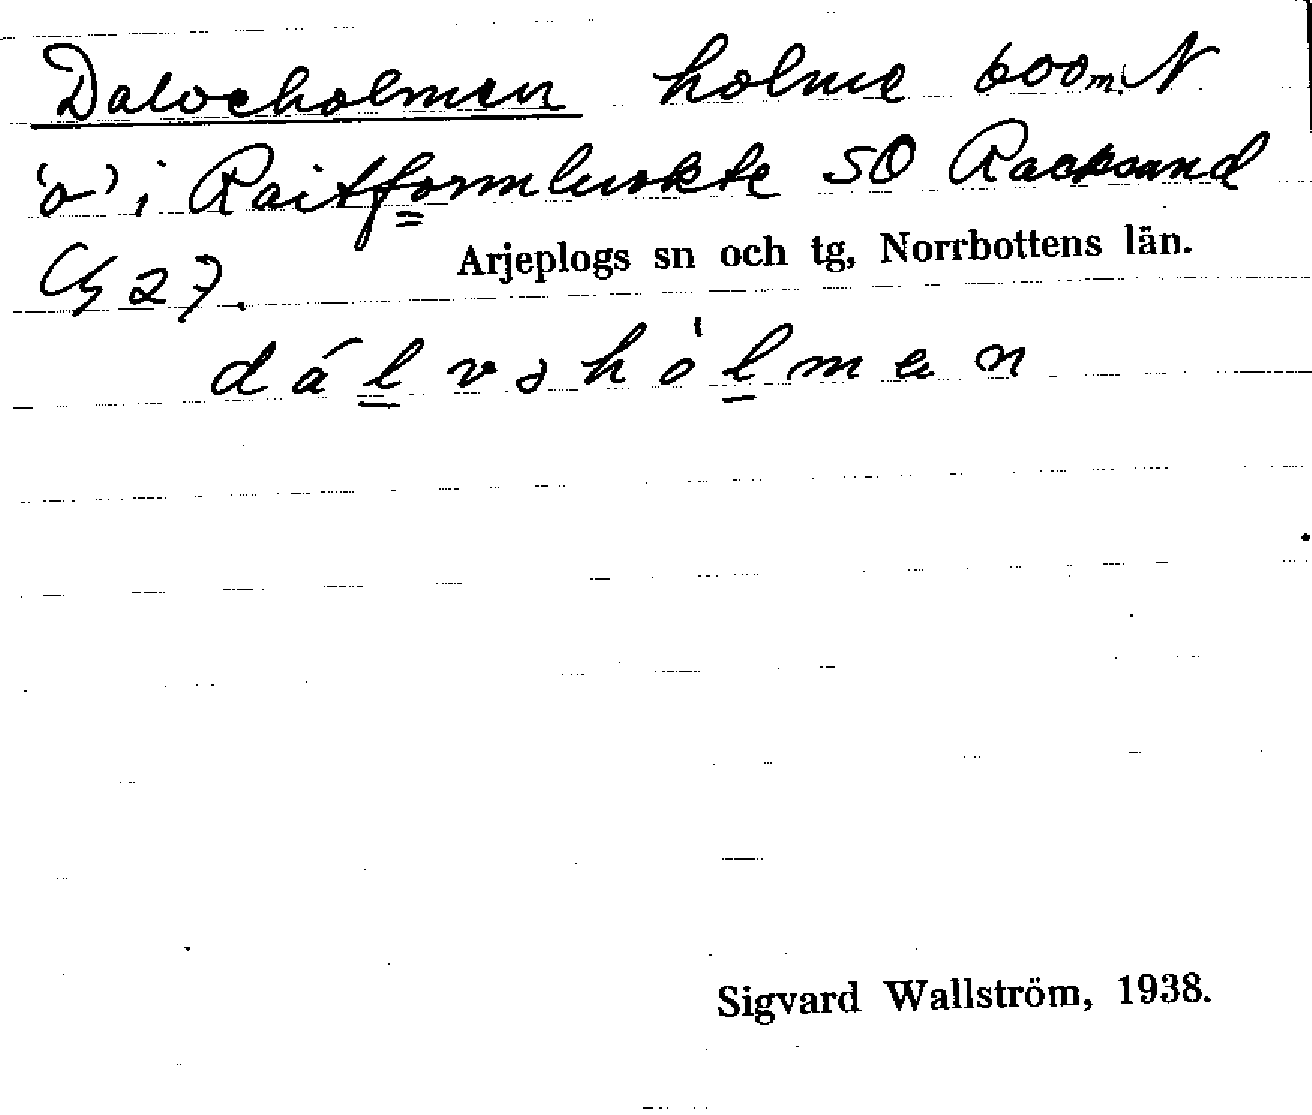 Dalveholmen holme 600 m. N
'o' i Raitformluokte SO Racksund
Cg 27.
Arjeplogs sn och tg, Norrbottens län.
dálvəhólmen
Sigvard Wallström, 1938.